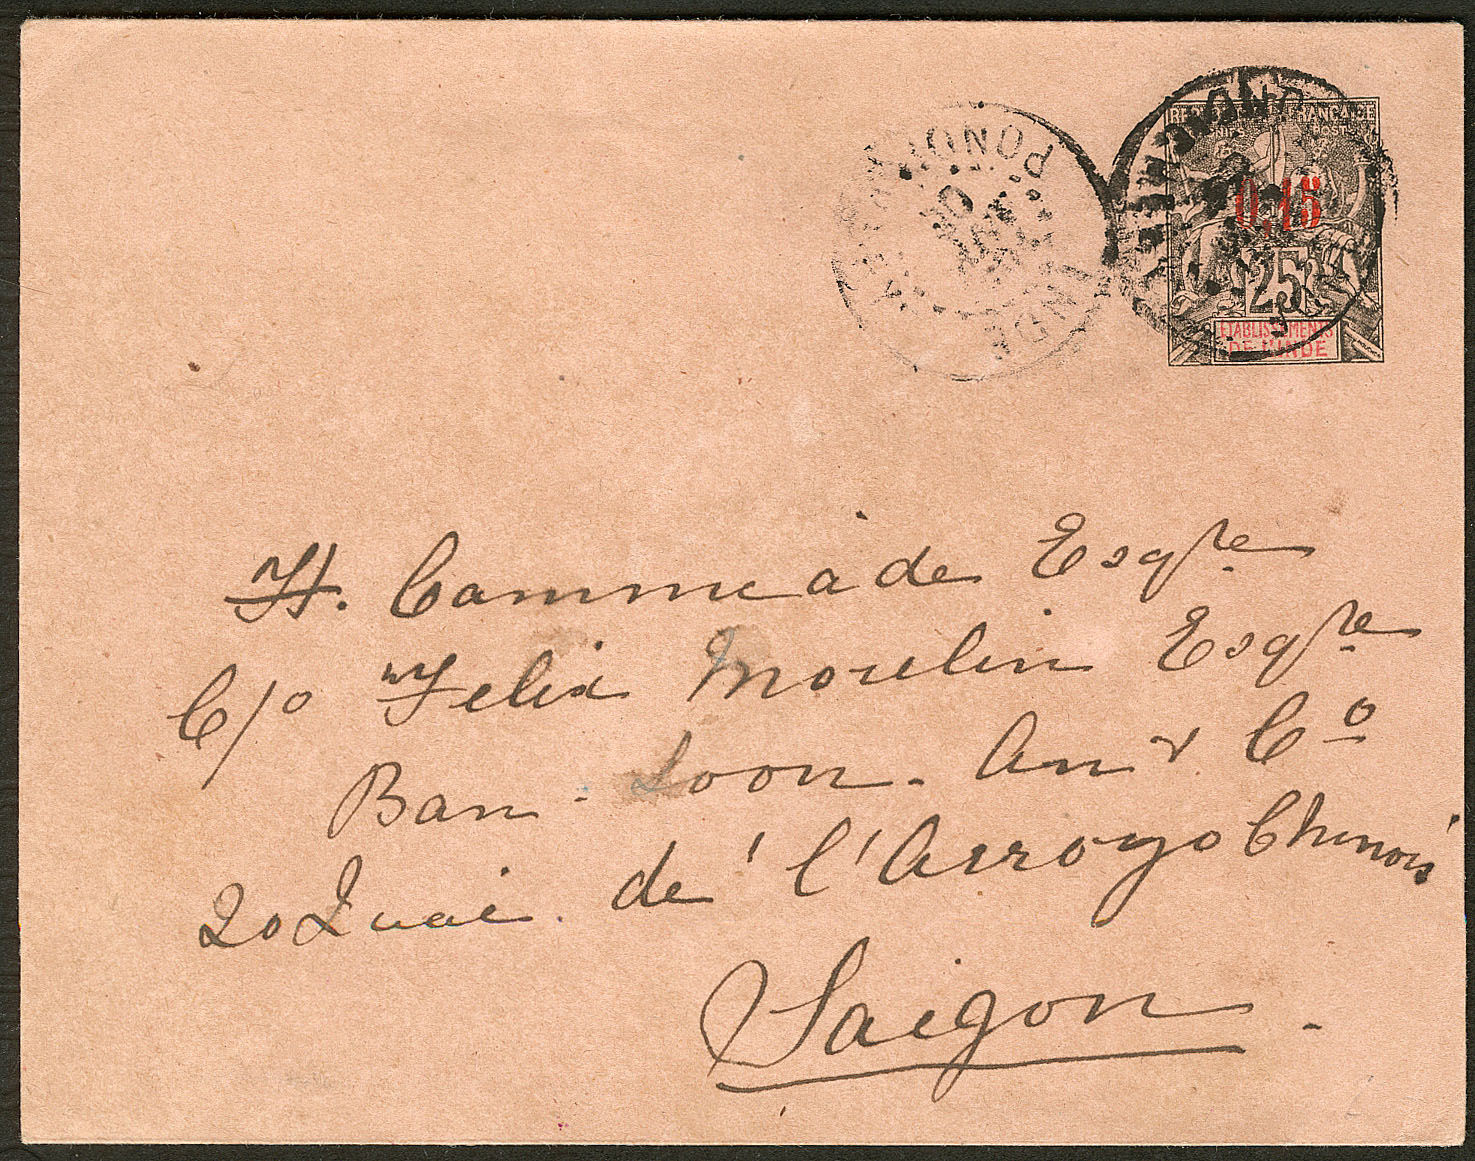 REPUBLIQUE FRANÇAISE
0,15
25
ETABLISSEMENTS
DE L'INDE
PONDICHERY
INDE
H. Cammiade Esqre
C/o Felix Moulin Esqre
Ban-Soon-An & Co
20 Quai de l'Arroyo Chinois
Saigon